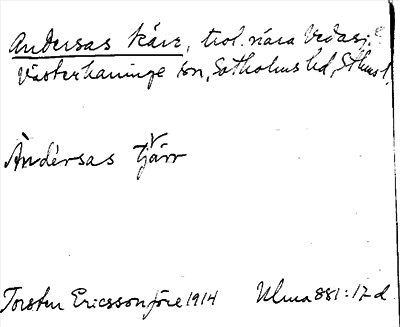 Andersas kärr, trol. nära Vedasj. e
Västerhaninge sn, Sotholms hd, Sthms l.
Àndérsas tjärr
Torsten Ericsson före 1914 Ulma 881:17 d.